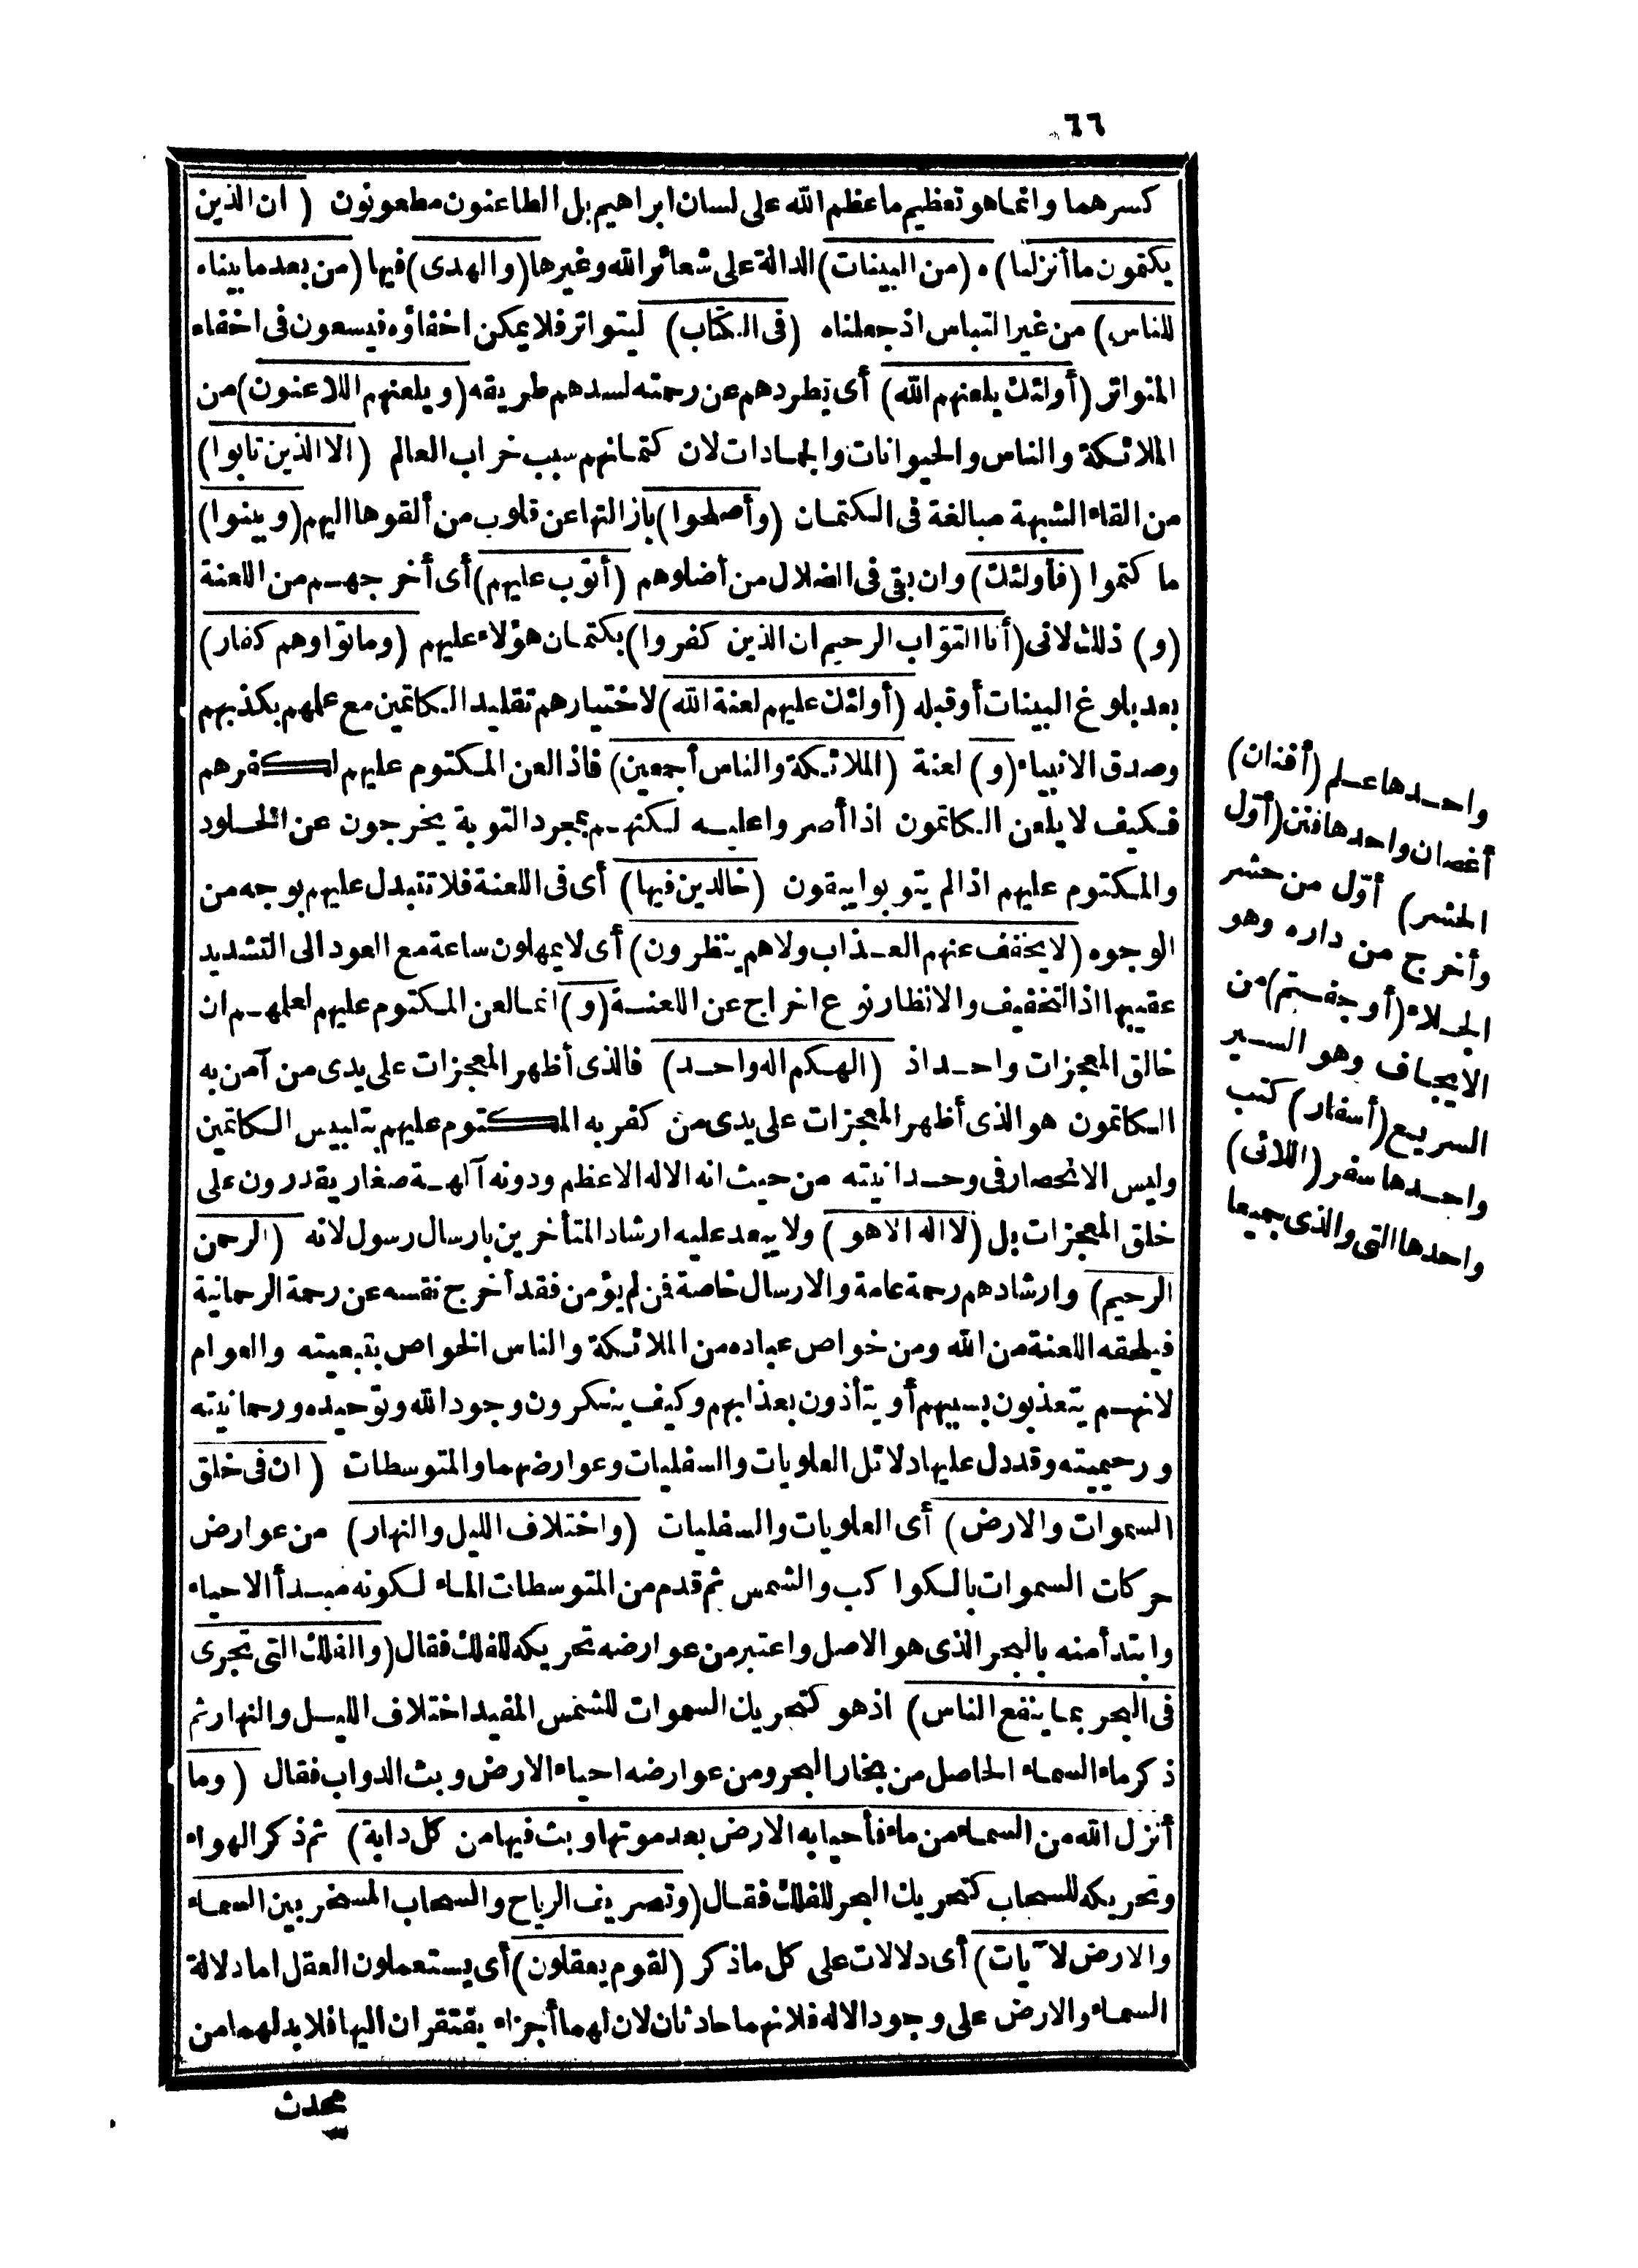 ٦٦
كسرهما وانما هو تعظيم ما عظم الله على لسان ابراهيم بل الطاعنون مطعونون (ان الذين
يكتمون ما أنزلنا) ه (من البينات) الدالة على شعائر الله وغيرها (والهدى) فيها (من بعد ما بيناه
للناس) من غير التباس اذ جعلناه (فى الكتاب) ليتواتر فلا يمكن اخفاؤه فيسعون فى اخفاء
المتواتر (أولئك يلعنهم الله) أى يطردهم عن رحمته لسدهم طريقه (ويلعنهم اللاعنون) من
الملائكة والناس والحيوانات والجمادات لان كتمانهم سبب خراب العالم (الا الذين تابوا)
من القاء الشبهة مبالغة فى الكتمان (وأصلحوا) بازالتها عن قلوب من ألقوها اليهم (وبينوا)
ما كتموا (فأولئك) وان بقى فى الضلال من أضلوهم (أتوب عليهم) أى أخرجهم من اللعنة
(و) ذلك لانى (أنا التواب الرحيم ان الذين كفروا) بكتمان هؤلاء عليهم (وماتوا وهم كفار)
بعد بلوغ البينات أو قبله (أولئك عليهم لعنة الله) لاختيارهم تقليد الكاتمين مع علمهم بكذبهم
وصدق الانبياء (و) لعنة (الملائكة والناس أجمعين) فاذا لعن المكتوم عليهم لكفرهم
فكيف لا يلعن الكاتمون اذا أصروا عليه لكنهم بمجرد التوبة يخرجون عن الخلود
والمكتوم عليهم اذا لم يتوبوا يبقون (خالدين فيها) أى فى اللعنة فلا تتبدل عليهم بوجه من
الوجوه (لا يخفف عنهم العذاب ولا هم ينظرون) أى لا يمهلون ساعة مع العود الى التشديد
عقيبها اذ التخفيف والانظار نوع اخراج عن اللعنة (و) انما لعن المكتوم عليهم لعلمهم ان
خالق المعجزات واحد اذ (الهكم اله واحد) فالذى أظهر المعجزات على يدى من آمن به
الكاتمون هو الذى أظهر المعجزات على يدى من كفر به المكتوم عليهم بتلبيس الكاتمين
وليس الانحصار فى وحدانيته من حيث انه الاله الاعظم ودونه آلهة صغار يقدرون على
خلق المعجزات بل (لا اله الا هو) ولا يبعد عليه ارشاد المتأخرين بارسال رسول لانه (الرحمن
الرحيم) وارشادهم رحمة عامة والارسال خاصة فمن لم يؤمن فقد أخرج نفسه عن رحمة الرحمانية
فيلحقه اللعنة من الله ومن خواص عباده من الملائكة والناس الخواص بتبعيته والعوام
لانهم يتعذبون بسببهم أو يتأذون بعذابهم وكيف ينكرون وجود الله وتوحيده ورحمانيته
ورحيميته وقد دل عليها دلائل العلويات والسفليات وعوارضهما والمتوسطات (ان فى خلق
السموات والارض) أى العلويات والسفليات (واختلاف الليل والنهار) من عوارض
حركات السموات بالكواكب والشمس ثم قدم من المتوسطات الماء لكونه مبدأ الاحياء
وابتدأ منه بالبحر الذى هو الاصل واعتبر من عوارضه تحريكه للفلك فقال (والفلك التى تجرى
فى البحر بما ينفع الناس) اذ هو كتحريك السموات للشمس المفيد اختلاف الليل والنهار ثم
ذكر ماء السماء الحاصل من بخار البحر ومن عوارضه احياء الارض وبث الدواب فقال (وما
أنزل الله من السماء من ماء فأحيا به الارض بعد موتها وبث فيها من كل دابة) ثم ذكر الهواء
وتحريكه للسحاب كتحريك البحر للفلك فقال (وتصريف الرياح والسحاب المسخر بين السماء
والارض لآيات) أى دلالات على كل ما ذكر (لقوم يعقلون) أى يستعملون العقل اما دلالة
السماء والارض على وجود الاله فلانهما حادثان لان لهما أجزاء يفتقران اليها فلا بد لهما من
محدث
واحدها علم (أفنان)
أغصان واحدها فنن (أول
الحشر) أول من حشر
وأخرج من داره وهو
الجلاء (أوجفتم) من
الايجاف وهو السير
السريع (أسفار) كتب
واحدها سفر (اللائى)
واحدها التى والذى جميعا